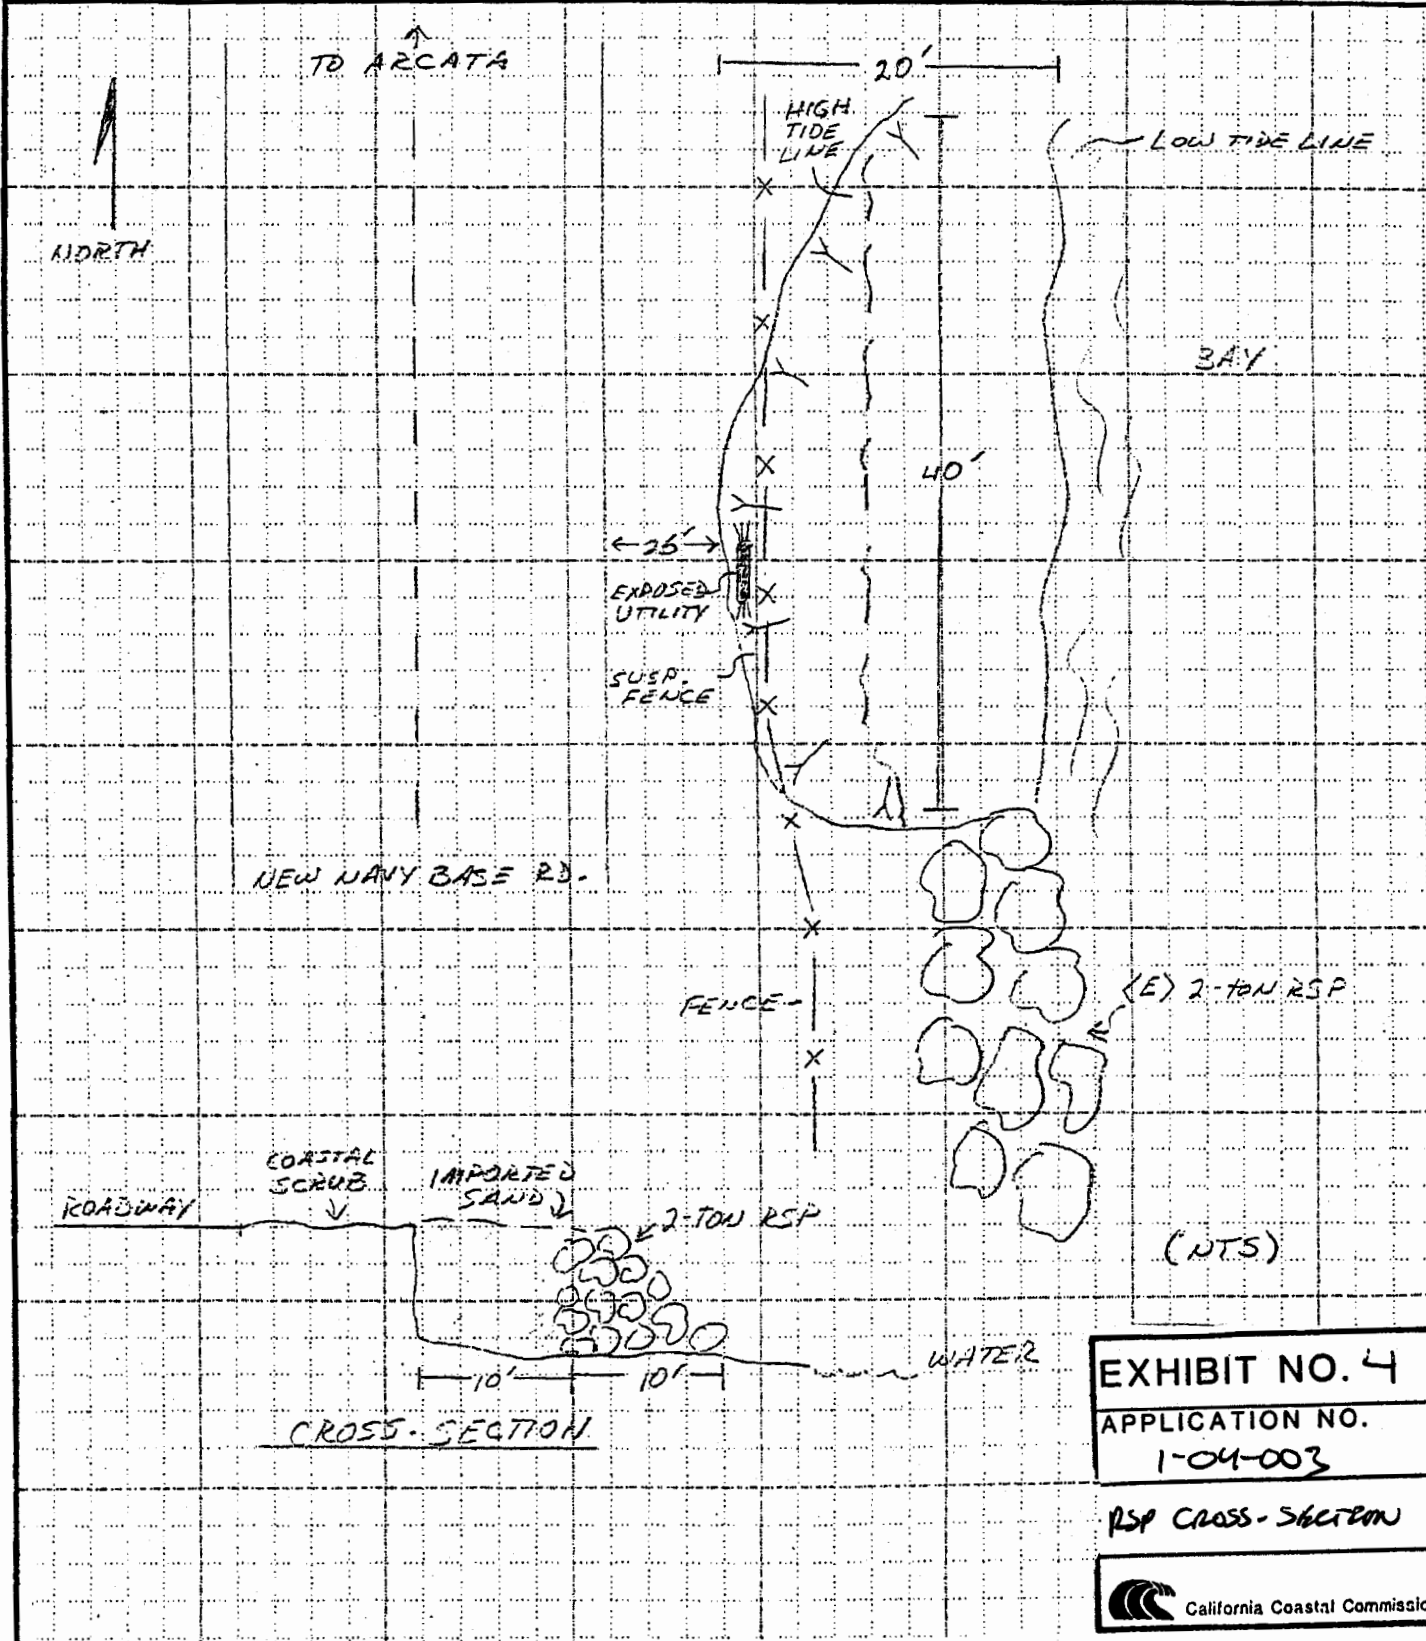 TO ARCATA
20'
HIGH
TIDE
LINE
LOW TIDE LINE
NORTH
BAY
40'
25'
EXPOSED
UTILITY
SUSP.
FENCE
NEW NAVY BASE RD.
FENCE
<E> 2-TON RSP
COASTAL
SCRUB
IMPORTED
SAND
ROADWAY
2-TON RSP
(NTS)
WATER
10'
10'
CROSS-SECTION
EXHIBIT NO. 4
APPLICATION NO.
1-04-003
RSP CROSS-SECTION
California Coastal Commissio